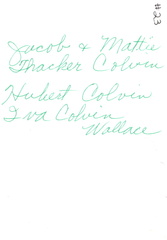 #23
Jacob & Mattie
Thacker Colvin
Hubert Colvin
Iva Colvin
Wallace